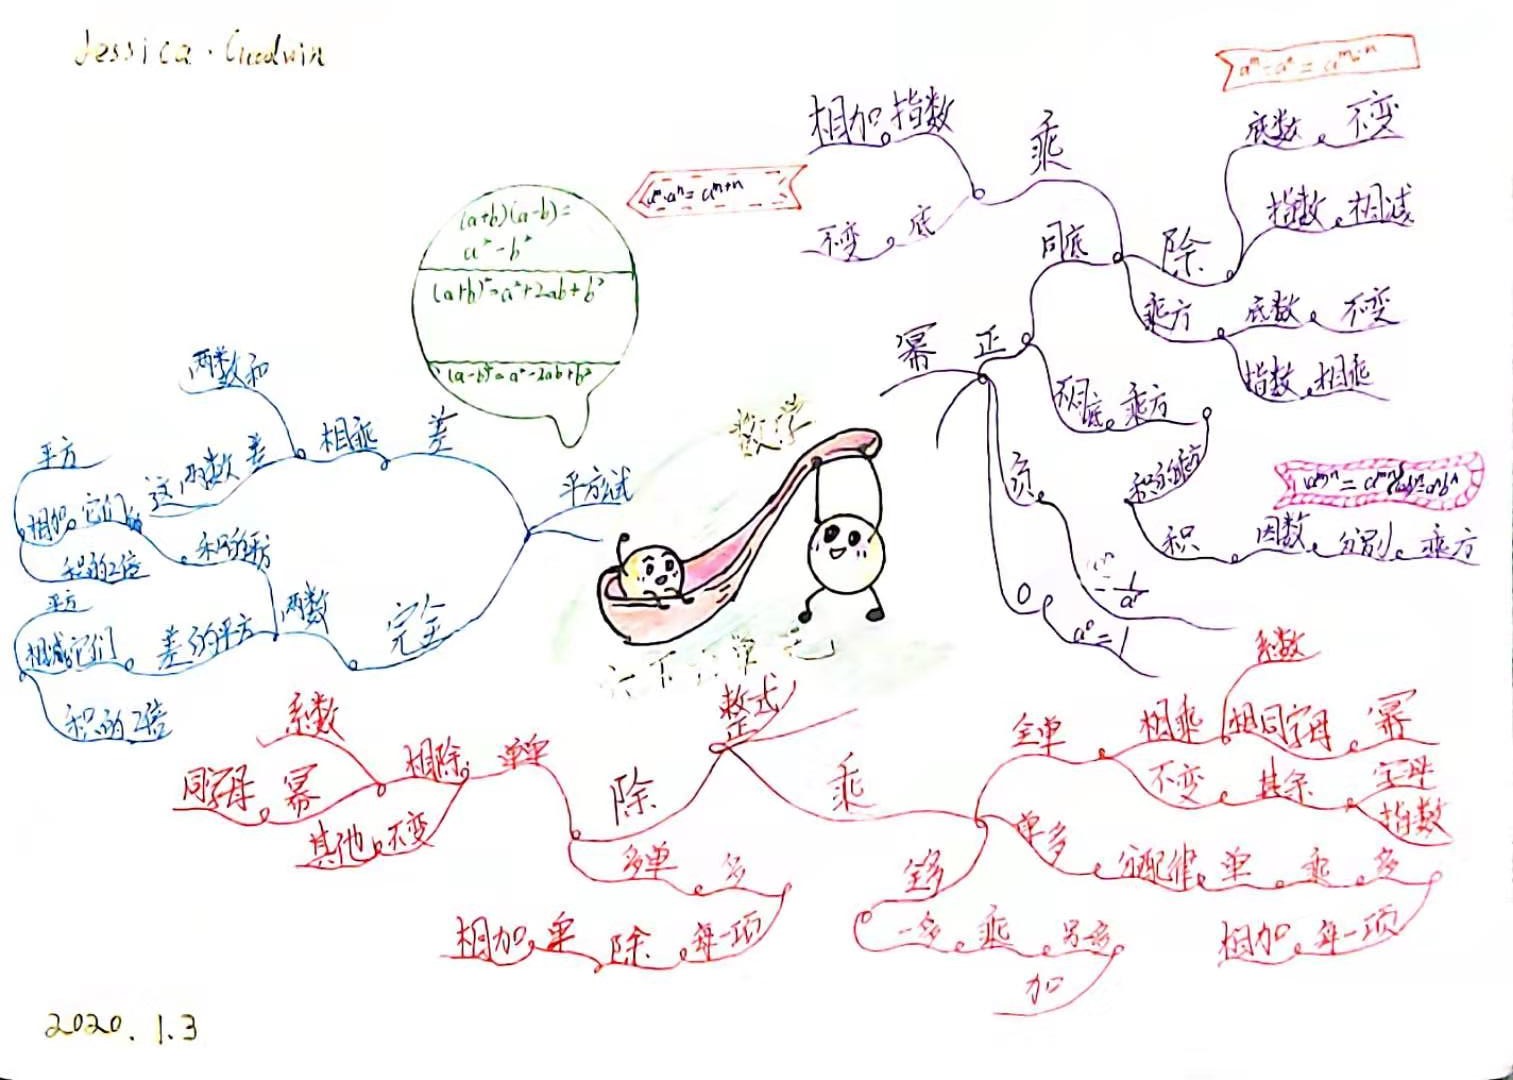 Jessica · Goodwin
相加 指数
乘
不变 底
aᵐ·aⁿ=aᵐ⁺ⁿ
底数 不变
指数 相减
同底
除
乘方
底数 不变
指数 相乘
幂
正
乘方
积
因数 分别 乘方
负
0
a⁰=1
(a+b)(a-b)=
a²-b²
(a+b)²=a²+2ab+b²
(a-b)²=a²-2ab+b²
数学
平方
差
相乘
两数和
这两数 差
完全
两数
平方
相加 它们
积的2倍
差的平方
平方
相减 它们
积的2倍
整式
除
单单
相除
系数
同字母 幂
其他 不变
多单 多
每一项
除
单
相加
乘
全单
相乘
系数
相同字母 幂
不变 其余 字母
指数
单多
分配律 单 乘 多
每一项
相加
全多
一多 乘 另多
加
2020.1.3